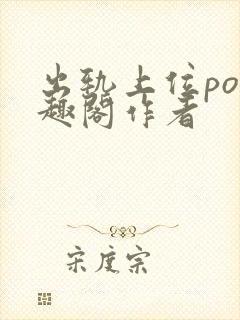 出轨上位po
趣阁作者
宋度宗